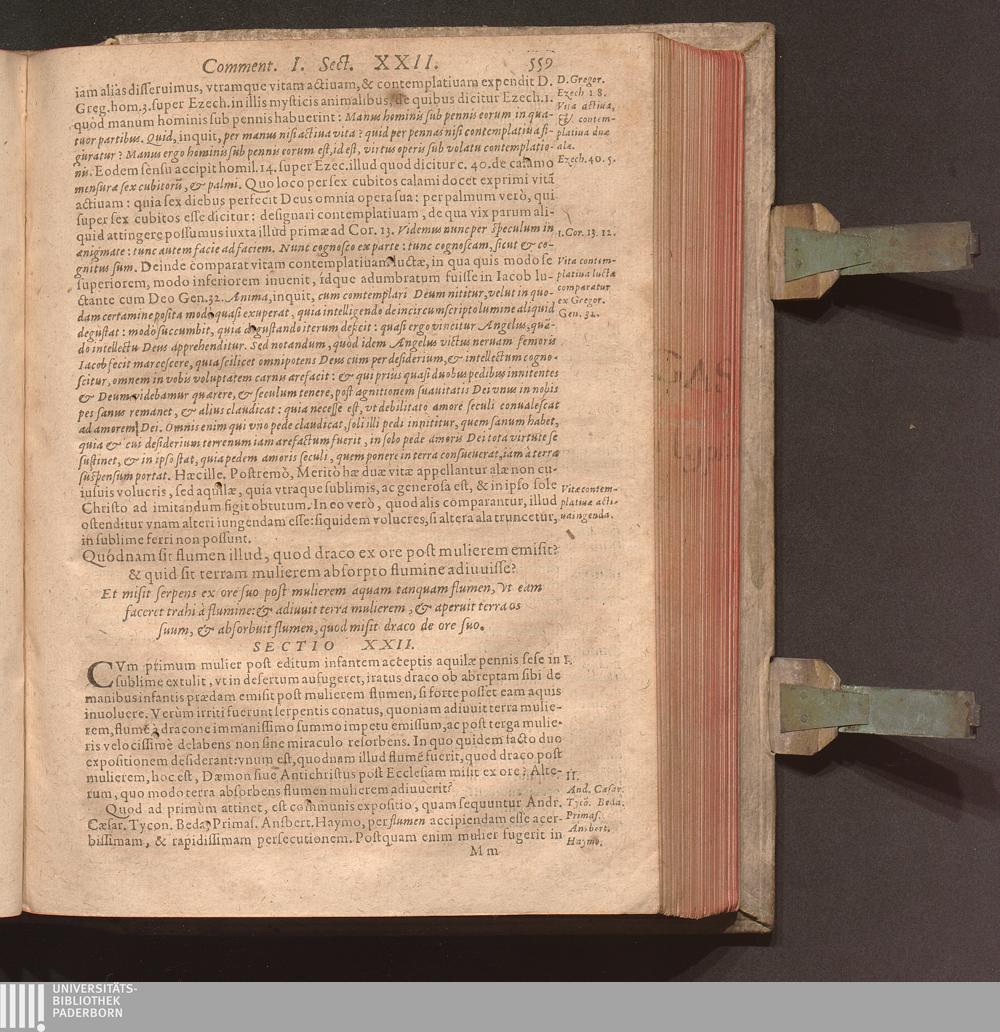 Comment. I. Sect. XXII. 559
iam alias disseruimus, vtramque vitam actiuam, & contemplatiuam expendit D.
Greg. hom. 3. super Ezech. in illis mysticis animalibus, de quibus dicitur Ezech. 1.
quòd manum hominis sub pennis habuerint: Manus hominis sub pennis eorum in qua-
tuor partibus. Quid, inquit, per manus nisi actiua vita? quid per pennas nisi contemplatiua fi-
guratur? Manus ergo hominis sub pennis eorum est, id est, virtus operis sub volatu contemplatio-
nis. Eodem sensu accipit homil. 14. super Ezec. illud quod dicitur c. 40. de calamo
mensuræ sex cubitorũ, & palmi. Quo loco per sex cubitos calami docet exprimi vitã
actiuam: quia sex diebus perfecit Deus omnia opera sua: per palmum verò, qui
super sex cubitos esse dicitur: designari contemplatiuam, de qua vix parum ali-
quid attingere possumus iuxta illud primæ ad Cor. 13. Videmus nunc per speculum in
ænigmate: tunc autem facie ad faciem. Nunc cognosco ex parte: tunc cognoscam, sicut & co-
gnitus sum. Deinde comparat vitam contemplatiuam luctæ, in qua quis modo se
superiorem, modo inferiorem inuenit, idque adumbratum fuisse in Iacob lu-
ctante cum Deo Gen. 32. Anima, inquit, cum comtemplari Deum nititur, velut in quo-
dam certamine posita modo quasi exuperat, quia intelligendo de incircumscripto lumine aliquid
degustat: modò succumbit, quia degustando iterum deficit: quasi ergo vincitur Angelus, quã-
do intellectu Deus apprehenditur. Sed notandum, quòd idem Angelus victus neruam femoris
Iacob fecit marcescere, quia scilicet omnipotens Deus cum per desiderium, & intellectum cogno-
scitur, omnem in vobis voluptatem carnis arefacit: & qui prius quasi duobus pedibus innitentes
& Deum videbamur quærere, & seculum tenere, post agnitionem suauitatis Dei vnus in nobis
pes sanus remanet, & alius claudicat: quia necesse est, vt debilitato amore seculi conualescat
ad amorem Dei. Omnis enim qui vno pede claudicat, soli illi pedi innititur, quem sanum habet,
quia & cui desiderium terrenum iam arefactum fuerit, in solo pede amoris Dei tota virtute se
sustinet, & in ipso stat, quia pedem amoris seculi, quem ponere in terra consueuerat, iam à terra
suspensum portat. Hæc ille. Postremò, Meritò hæ duæ vitæ appellantur alæ non cu-
iusuis volucris, sed aquilæ, quia vtraque sublimis, ac generosa est, & in ipso sole
Christo ad imitandum figit obtutum. In eo verò, quod alis comparantur, illud
ostenditur vnam alteri iungendam esse: siquidem volucres, si altera ala truncetur,
in sublime ferri non possunt.
D. Gregor.
Ezech 1 8.
Vita actiua,
& contem-
platiua duæ
alæ.
Ezech. 40. 5.
1. Cor. 13. 12.
Vita contem-
platiua luctæ
comparatur
ex Gregor.
Gen. 32.
Vitæ contem-
platiuæ acti-
ua ingenda.
Quódnam sit flumen illud, quod draco ex ore post mulierem emisit?
& quid sit terram mulierem absorpto flumine adiuuisse?
Et misit serpens ex ore suo post mulierem aquam tanquam flumen, vt eam
faceret trahi à flumine: & adiuuit terra mulierem, & aperuit terra os
suum, & absorbuit flumen, quod misit draco de ore suo.
SECTIO XXII.
CVm primum mulier post editum infantem acceptis aquilæ pennis sese in
sublime extulit, vt in desertum aufugeret, iratus draco ob abreptam sibi de
manibus infantis prædam emisit post mulierem flumen, si forte posset eam aquis
inuoluere. Verùm irriti fuerunt serpentis conatus, quoniam adiuuit terra mulie-
rem, flumẽ à dracone immanissimo summo impetu emissum, ac post terga mulie-
ris velocissimè delabens non sine miraculo resorbens. In quo quidem facto duo
expositionem desiderant: vnum est, quodnam illud flumẽ fuerit, quod draco post
mulierem, hoc est, Dæmon siue Antichristus post Ecclesiam misit ex ore? Alte-
rum, quo modo terra absorbens flumen mulierem adiuuerit?
Quod ad primùm attinet, est communis expositio, quam sequuntur Andr.
Cæsar. Tycon. Beda, Primas. Ansbert. Haymo, per flumen accipiendam esse acer-
bissimam, & rapidissimam persecutionem. Postquam enim mulier fugerit in
I.
II.
And. Cæsar.
Tycō. Beda.
Primas.
Ansbert.
Haymo.
Mm
UNIVERSITÄTS-
BIBLIOTHEK
PADERBORN